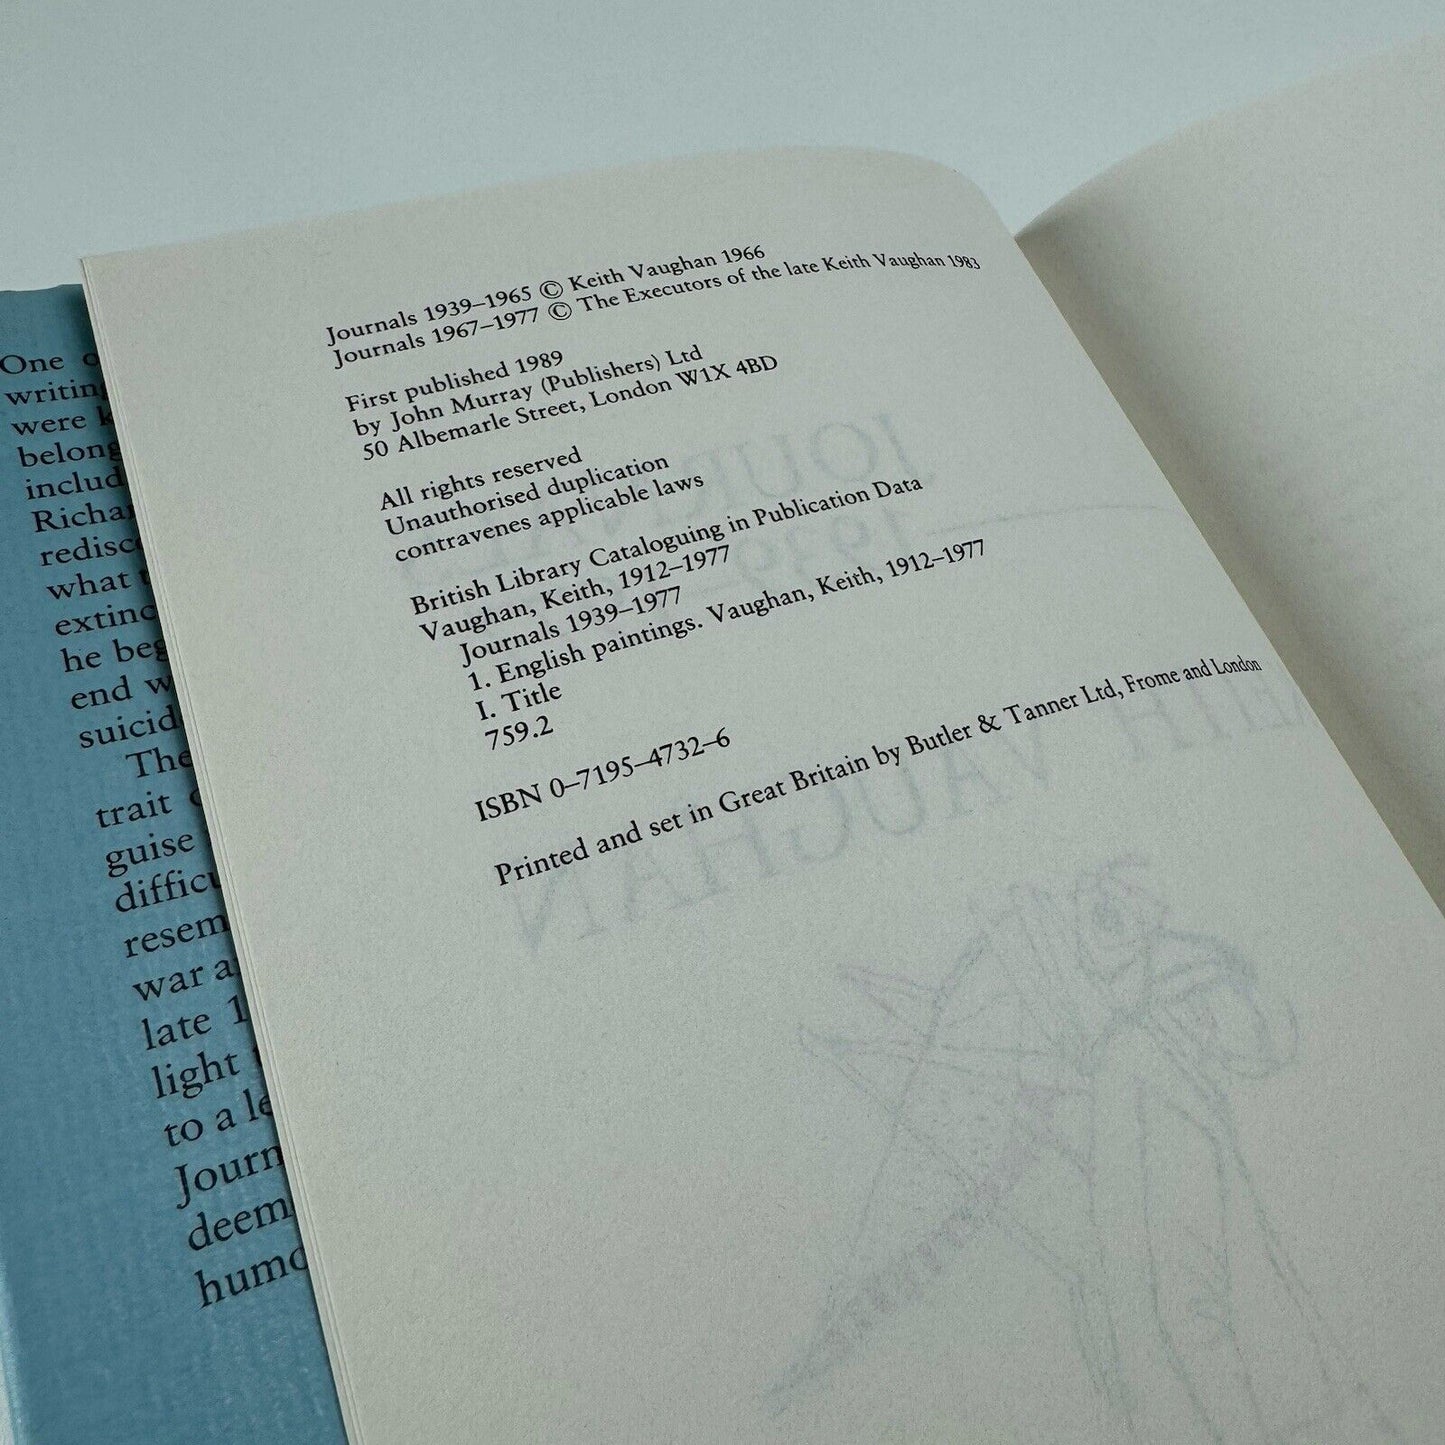 Journals 1939–1965 © Keith Vaughan 1966
Journals 1967–1977 © The Executors of the late Keith Vaughan 1983
First published 1989
by John Murray (Publishers) Ltd
50 Albemarle Street, London W1X 4BD
All rights reserved
Unauthorised duplication
contravenes applicable laws
British Library Cataloguing in Publication Data
Vaughan, Keith, 1912–1977
Journals 1939–1977
1. English paintings. Vaughan, Keith, 1912–1977
I. Title
759.2
ISBN 0–7195–4732–6
Printed and set in Great Britain by Butler & Tanner Ltd, Frome and London
One
writing
were
belong
includ
Richar
redisc
what
extinc
he beg
end w
suicid
The
trait
guise
difficu
resem
war a
late 1
light
to a le
Journ
deem
humo